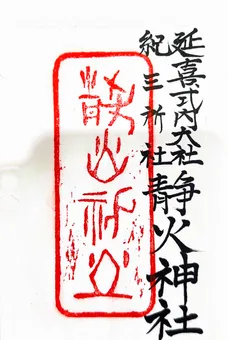 延喜式内大社
紀三所社
静火神社
静火神社